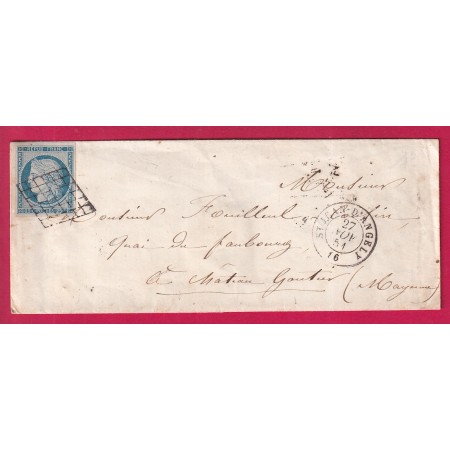 REPUB. FRANC.
Monsieur
Monsieur Fouilleul
Quai du faubourg
à Château Gontier (Mayenne)
ST JEAN-D'ANGELY
27
NOV
51
16